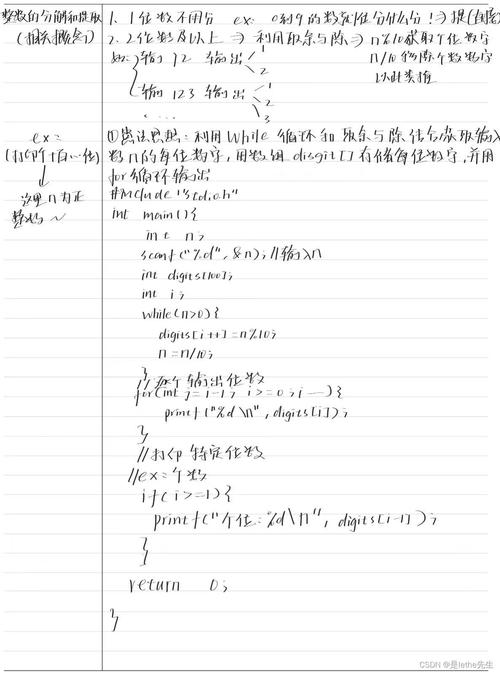 整数的分解和提取
(相关概念)
1. 1位数不用分 ex: 0到9的数就
2. 2位数及以上 ⇒ 利用取余与除 ⇒ n%10获取个位数字
n/10 去除个位数字
以此类推
如: 输入 12 输出 1
2
输入 123 输出 1
2
3
ex:
(打印个十百…位)
↓
这里n为正
整数~
①算法思想: 利用 while 循环和取余与除结合获取输入
数n的每位数字, 用数组 disgit[] 存储每位数字, 并用
for 循环输出
#include "stdio.h"
int main(){
int n;
scanf("%d", &n); //输入n
int digits[100];
int i;
while(n>0){
digits[i++]=n%10;
n=n/10;
}
//逐个输出位数
for(int j=i-1; i>=0; i--){
printf("%d \n", digits[i]);
}
//打印特定位数
//ex: 个数
if(i>=1){
printf("个位: %d\n", digits[i-1]);
}
}
return 0;
}
CSDN @是lethe先生